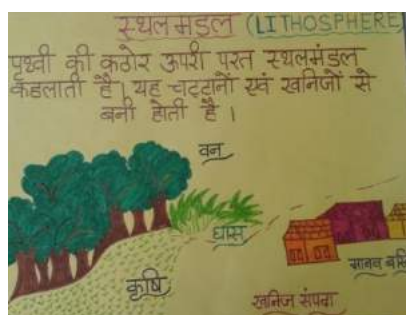 स्थलमडल (LITHOSPHERE)
पृथ्वी की कठोर ऊपरी परत स्थलमंडल
कहलाती है। यह चट्टानों एवं खनिजों से
बनी होती है।
वन
घास
कृषि
मानव
खनिज संपदा